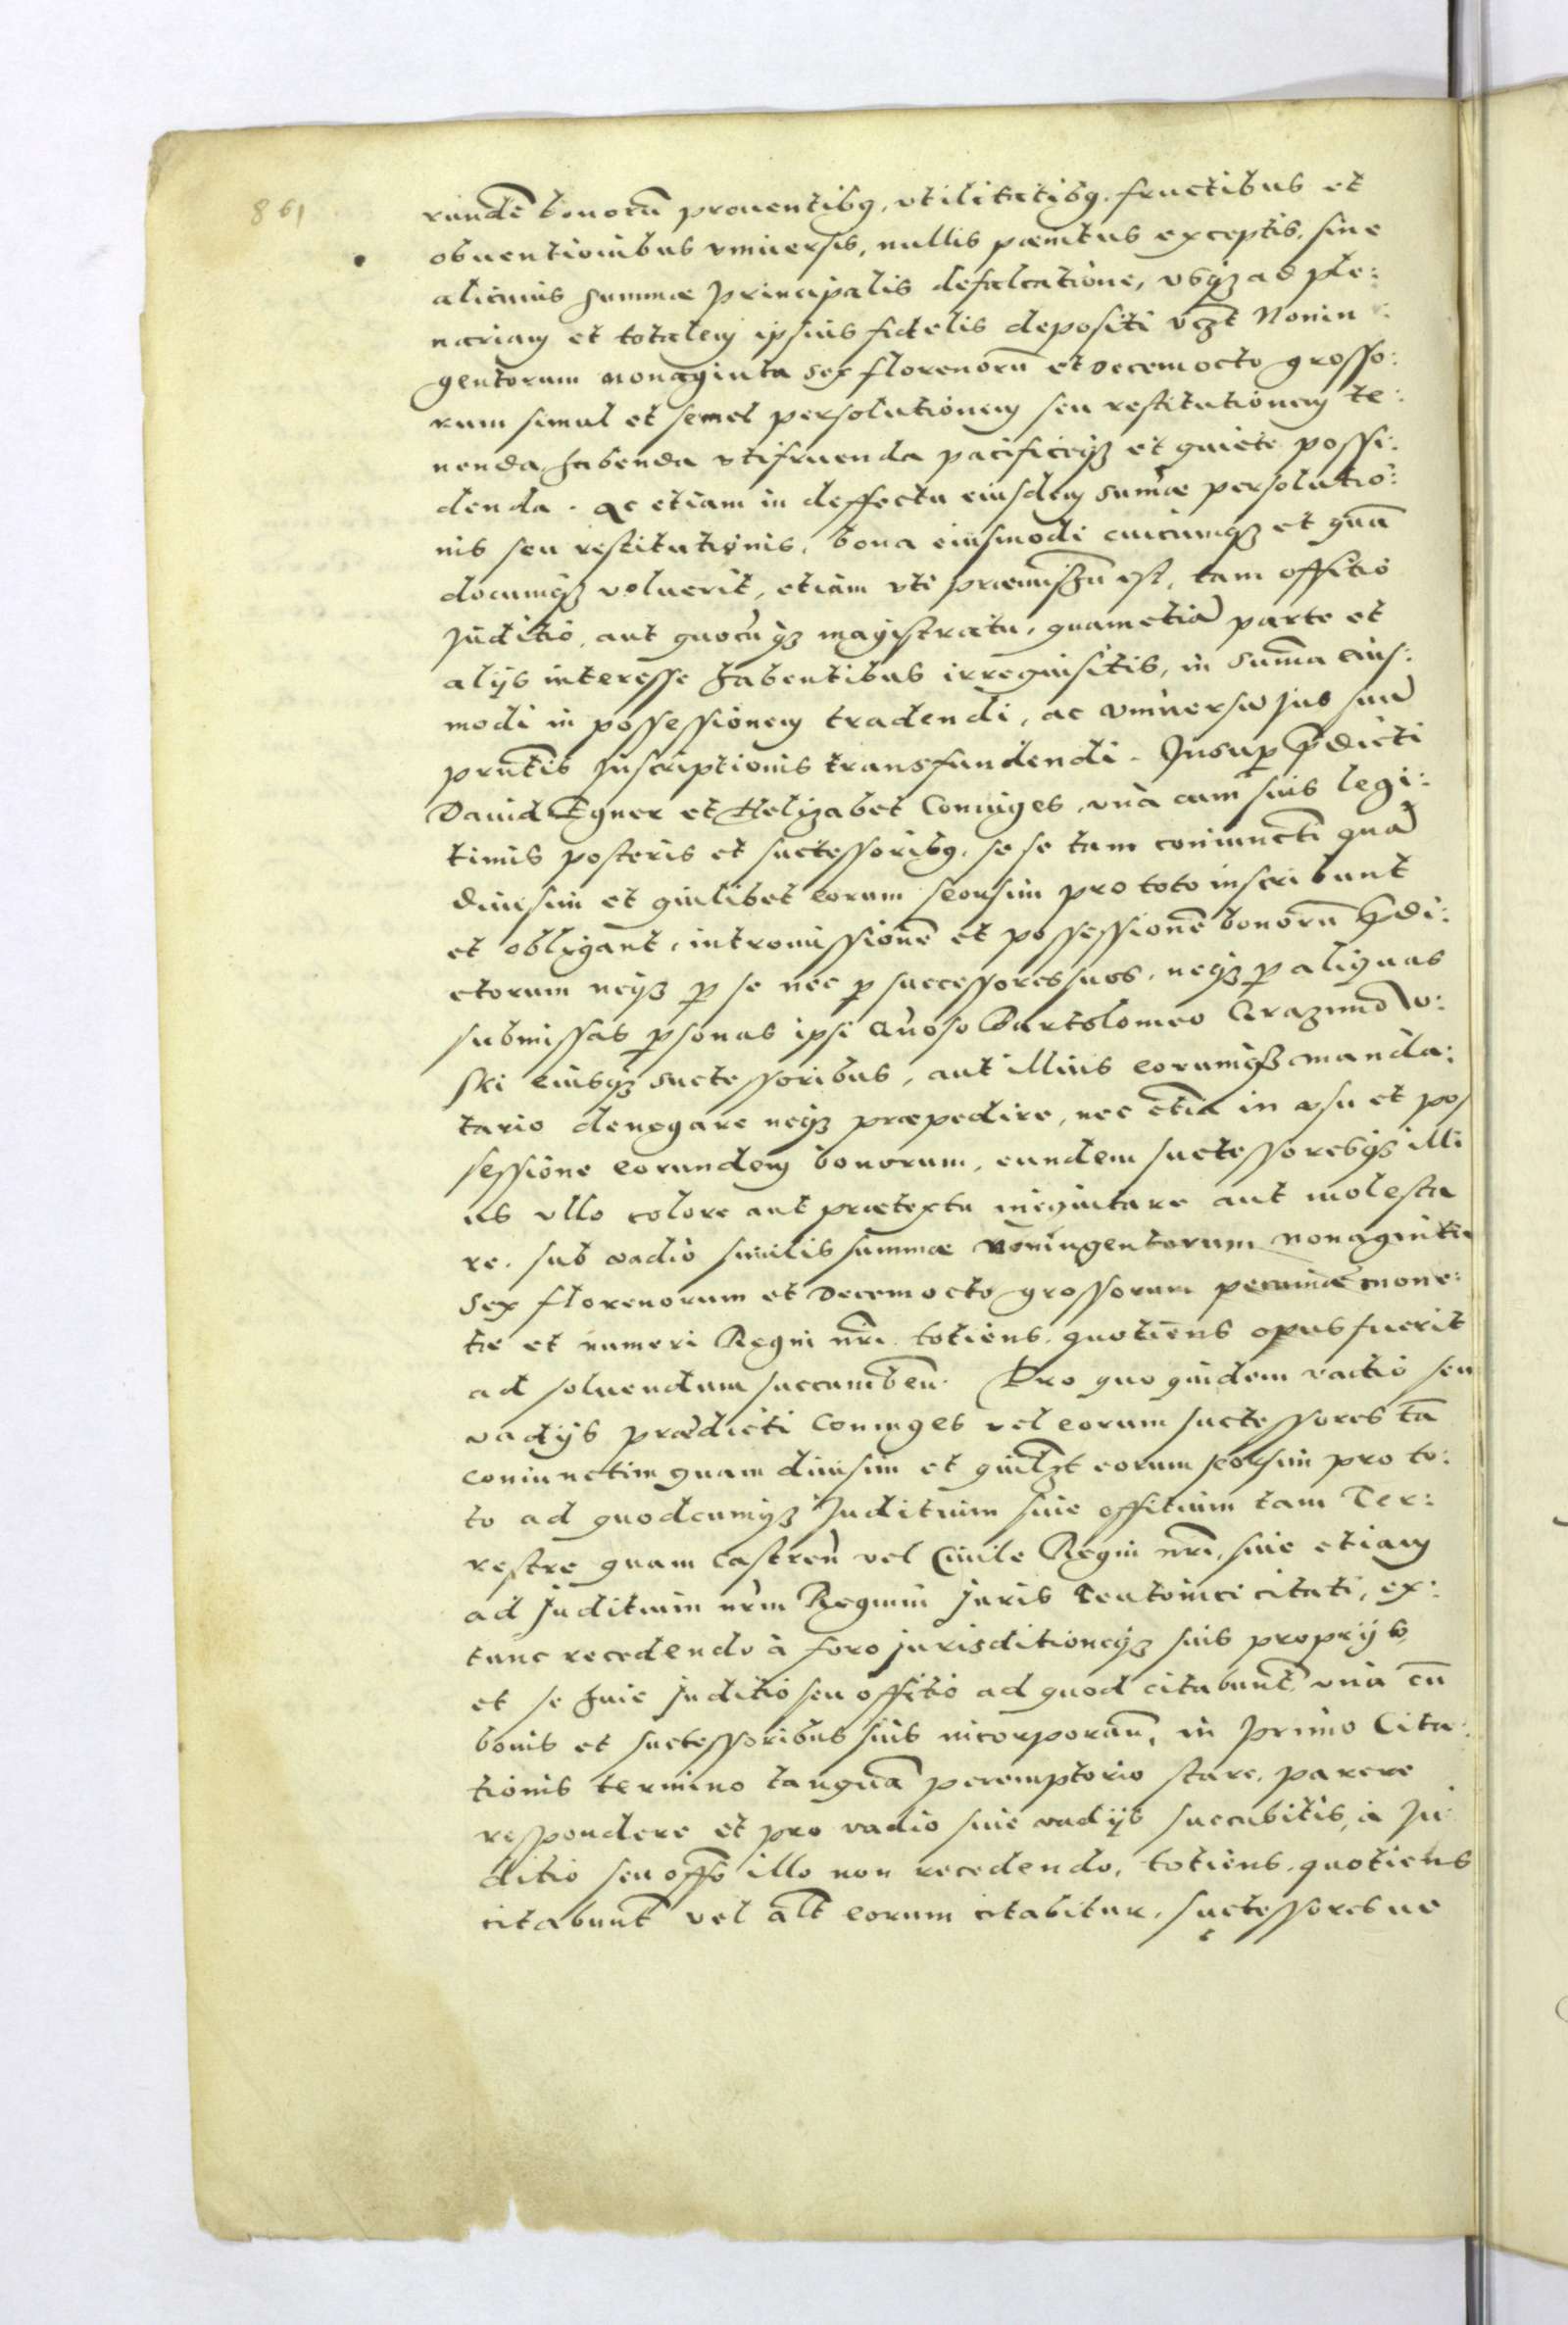 861
rundē bonorū prouentibꝯ, vtilitatibꝯ, fructibus et
obuentionibus vniuersis, nullis pænitus exceptis, sine
alicuius summæ principalis defalcatione, vsqꝫ ad ple:
nariam et totalem ipsius fidelis depositi vꝫt Nonin
gentorum nonaginta sex florenorū et decemocto grosso:
rum simul et semel persolutionem seu restitutionem te:
nenda, habenda vtifruenda pacificeqꝫ et quiete possi:
denda. Ac etiam in deffectu eiusdem sumæ persolutio:
nis seu restitutionis, bona eiusmodi cuicumqꝫ et quā
documqꝫ voluerit, etiam vti præmissū est, tam offitio
Juditio, aut quocūqꝫ magistratu, quametiā parte et
alijs interesse habentibus irrequisitis, in suma eius:
modi in possessionem tradendi, ac vniuersū jus suū
pr̄ntis Inscriptionis transfundendi. Insup p̄dicti
Dauid Egner et Helizabet Coniuges, vnà cum suis legi:
timis posteris et suctessoribꝯ, se se tam coniuncti quā
diuisim et quilibet eorum seorsim pro toto inscribunt
et obligant, intromissionē et possessionē bonorū p̄di:
ctorum neqꝫ p se nec p successores suos, neqꝫ p aliquas
submissas psonas ipsi Bartolomeo
ski eiusqꝫ suctessoribus, aut illius eorumqꝫ manda:
tario denegare neqꝫ præpedire, nec etiā in vsu et pos
sessione eorundem bonorum, eundem suctessoresqꝫ illi
us vllo colore aut prætextu inquietare aut molesta
re, sub vadio similis summæ Noningentorum nonaginta
sex florenorum et decemocto grossorum pecuniæ mone:
tæ et numeri Regni nr̄i totiens, quotiens opus fuerit
ad soluendum succumbēn. Pro quo quidem vadio seu
vadijs prædicti Coniuges vel eorum suctessores tā
coniunctim quam diuisim et quilꝫt eorum seorsim pro to:
to ad quodcumqꝫ Juditium siue offitium tam Ter:
restre quam Castren̄ vel Ciuile Regni nr̄i, siue etiam
ad Juditium nr̄m Regium juris teutonici citati, ex:
tunc recedendo à foro jurisditioneqꝫ suis proprijs,
et se huic juditio seu offitio ad quod citabunt̄ vnà cū
bonis et suctessoribus suis incorporān, in primo Cita:
tionis termino tanquā peremptorio stare, parere
respondere et pro vadio siue vadijs succubitis, à Ju
ditio seu offo illo non recedendo, totiens, quotiens
citabunt̄ vel alt̄ eorum citabitur, suctessoresue